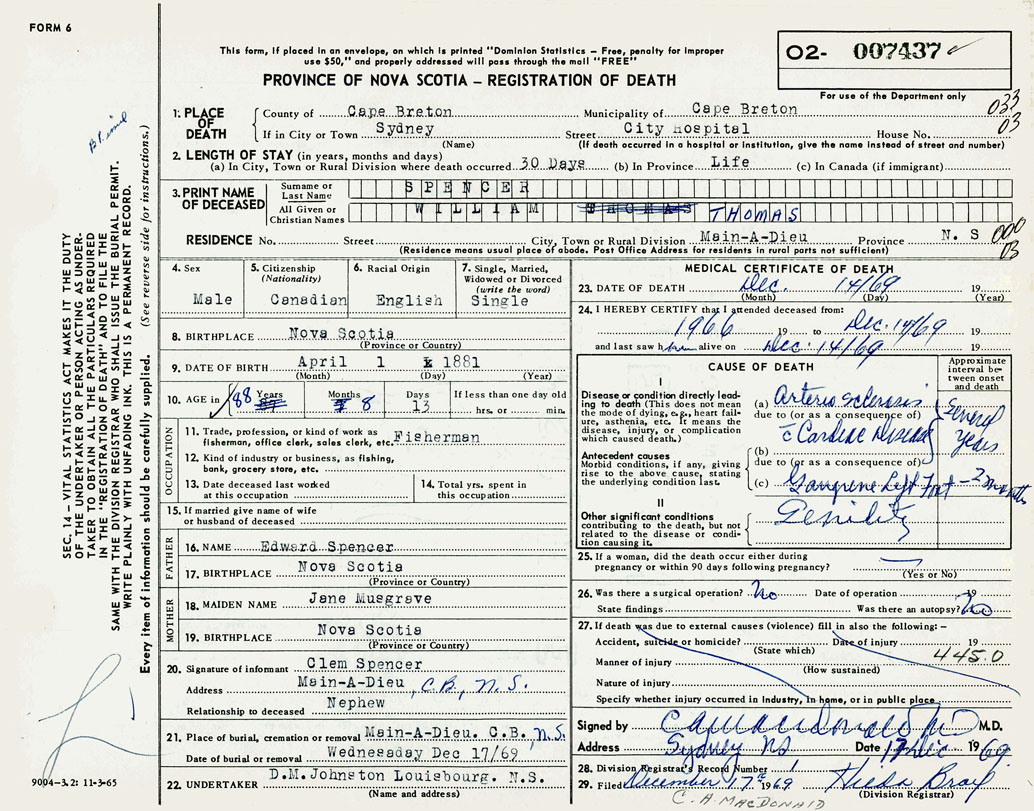 FORM 6
This form, if placed in an envelope, on which is printed "Dominion Statistics – Free, penalty for improper
use $50," and properly addressed will pass through the mail "FREE"
PROVINCE OF NOVA SCOTIA – REGISTRATION OF DEATH
02- 007437
For use of the Department only
033
03
1. PLACE OF DEATH
County of Cape Breton Municipality of Cape Breton
If in City or Town Sydney Street City Hospital House No.
(Name) (If death occurred in a hospital or institution, give the name instead of street and number)
2. LENGTH OF STAY (in years, months and days)
(a) In City, Town or Rural Division where death occurred 30 Days (b) In Province Life (c) In Canada (if immigrant)
3. PRINT NAME OF DECEASED
Surname or Last Name SPENCER
All Given or Christian Names WILLIAM THOMAS THOMAS
RESIDENCE No. Street City, Town or Rural Division Main-A-Dieu Province N. S
(Residence means usual place of abode. Post Office Address for residents in rural parts not sufficient)
000
03
4. Sex Male
5. Citizenship (Nationality) Canadian
6. Racial Origin English
7. Single, Married, Widowed or Divorced (write the word) Single
8. BIRTHPLACE Nova Scotia
(Province or Country)
9. DATE OF BIRTH April 1 1881
(Month) (Day) (Year)
10. AGE in 88 Years Months 8 Days 13 If less than one day old hrs. or min.
OCCUPATION
11. Trade, profession, or kind of work as
fisherman, office clerk, sales clerk, etc. Fisherman
12. Kind of industry or business, as fishing,
bank, grocery store, etc.
13. Date deceased last worked
at this occupation
14. Total yrs. spent in
this occupation
15. If married give name of wife
or husband of deceased
FATHER
16. NAME Edward Spencer
17. BIRTHPLACE Nova Scotia
(Province or Country)
MOTHER
18. MAIDEN NAME Jane Musgrave
19. BIRTHPLACE Nova Scotia
(Province or Country)
20. Signature of informant Clem Spencer
Address Main-A-Dieu, C.B., N.S.
Relationship to deceased Nephew
21. Place of burial, cremation or removal Main-A-Dieu. C.B., N.S.
Date of burial or removal Wednesaday Dec 17/69
22. UNDERTAKER D.M.Johnston Louisbourg. N.S.
(Name and address)
MEDICAL CERTIFICATE OF DEATH
23. DATE OF DEATH Dec. 14/69 19
(Month) (Day) (Year)
24. I HEREBY CERTIFY that I attended deceased from:
1966 19 to Dec. 14/69 19
and last saw him alive on Dec. 14/69 19
CAUSE OF DEATH
Approximate
interval be-
tween onset
and death
I
Disease or condition directly lead-
ing to death (This does not mean
the mode of dying, e.g., heart fail-
ure, asthenia, etc. It means the
disease, injury, or complication
which caused death.)
(a) Arterio sclerosis
due to (or as a consequence of)
c̄ Cardiac Disease
Several
years
Antecedent causes
Morbid conditions, if any, giving
rise to the above cause, stating
the underlying condition last.
(b)
due to (or as a consequence of)
(c) Gangrene Left Foot – 2 months
II
Other significant conditions
contributing to the death, but not
related to the disease or condi-
tion causing it.
Senility
25. If a woman, did the death occur either during
pregnancy or within 90 days following pregnancy?
(Yes or No)
26. Was there a surgical operation? No Date of operation 19
State findings Was there an autopsy? No
27. If death was due to external causes (violence) fill in also the following: –
Accident, suicide or homicide? Date of injury 19
(State which)
445.0
Manner of injury
(How sustained)
Nature of injury
Specify whether injury occurred in Industry, in home, or in public place
Signed by M.D.
Address Sydney NS Date 17 Dec 1969
28. Division Registrar's Record Number
29. Filed December 17th 1969 Hilda
(Division Registrar)
C. A. MACDONALD
SEC. 14 – VITAL STATISTICS ACT MAKES IT THE DUTY
OF THE UNDERTAKER OR PERSON ACTING AS UNDER-
TAKER TO OBTAIN ALL THE PARTICULARS REQUIRED
IN THE "REGISTRATION OF DEATH" AND TO FILE THE
SAME WITH THE DIVISION REGISTRAR WHO SHALL ISSUE THE BURIAL PERMIT.
WRITE PLAINLY WITH UNFADING INK. THIS IS A PERMANENT RECORD.
Every item of information should be carefully supplied. (See reverse side for instructions.)
9004–3.2: 11-3-65